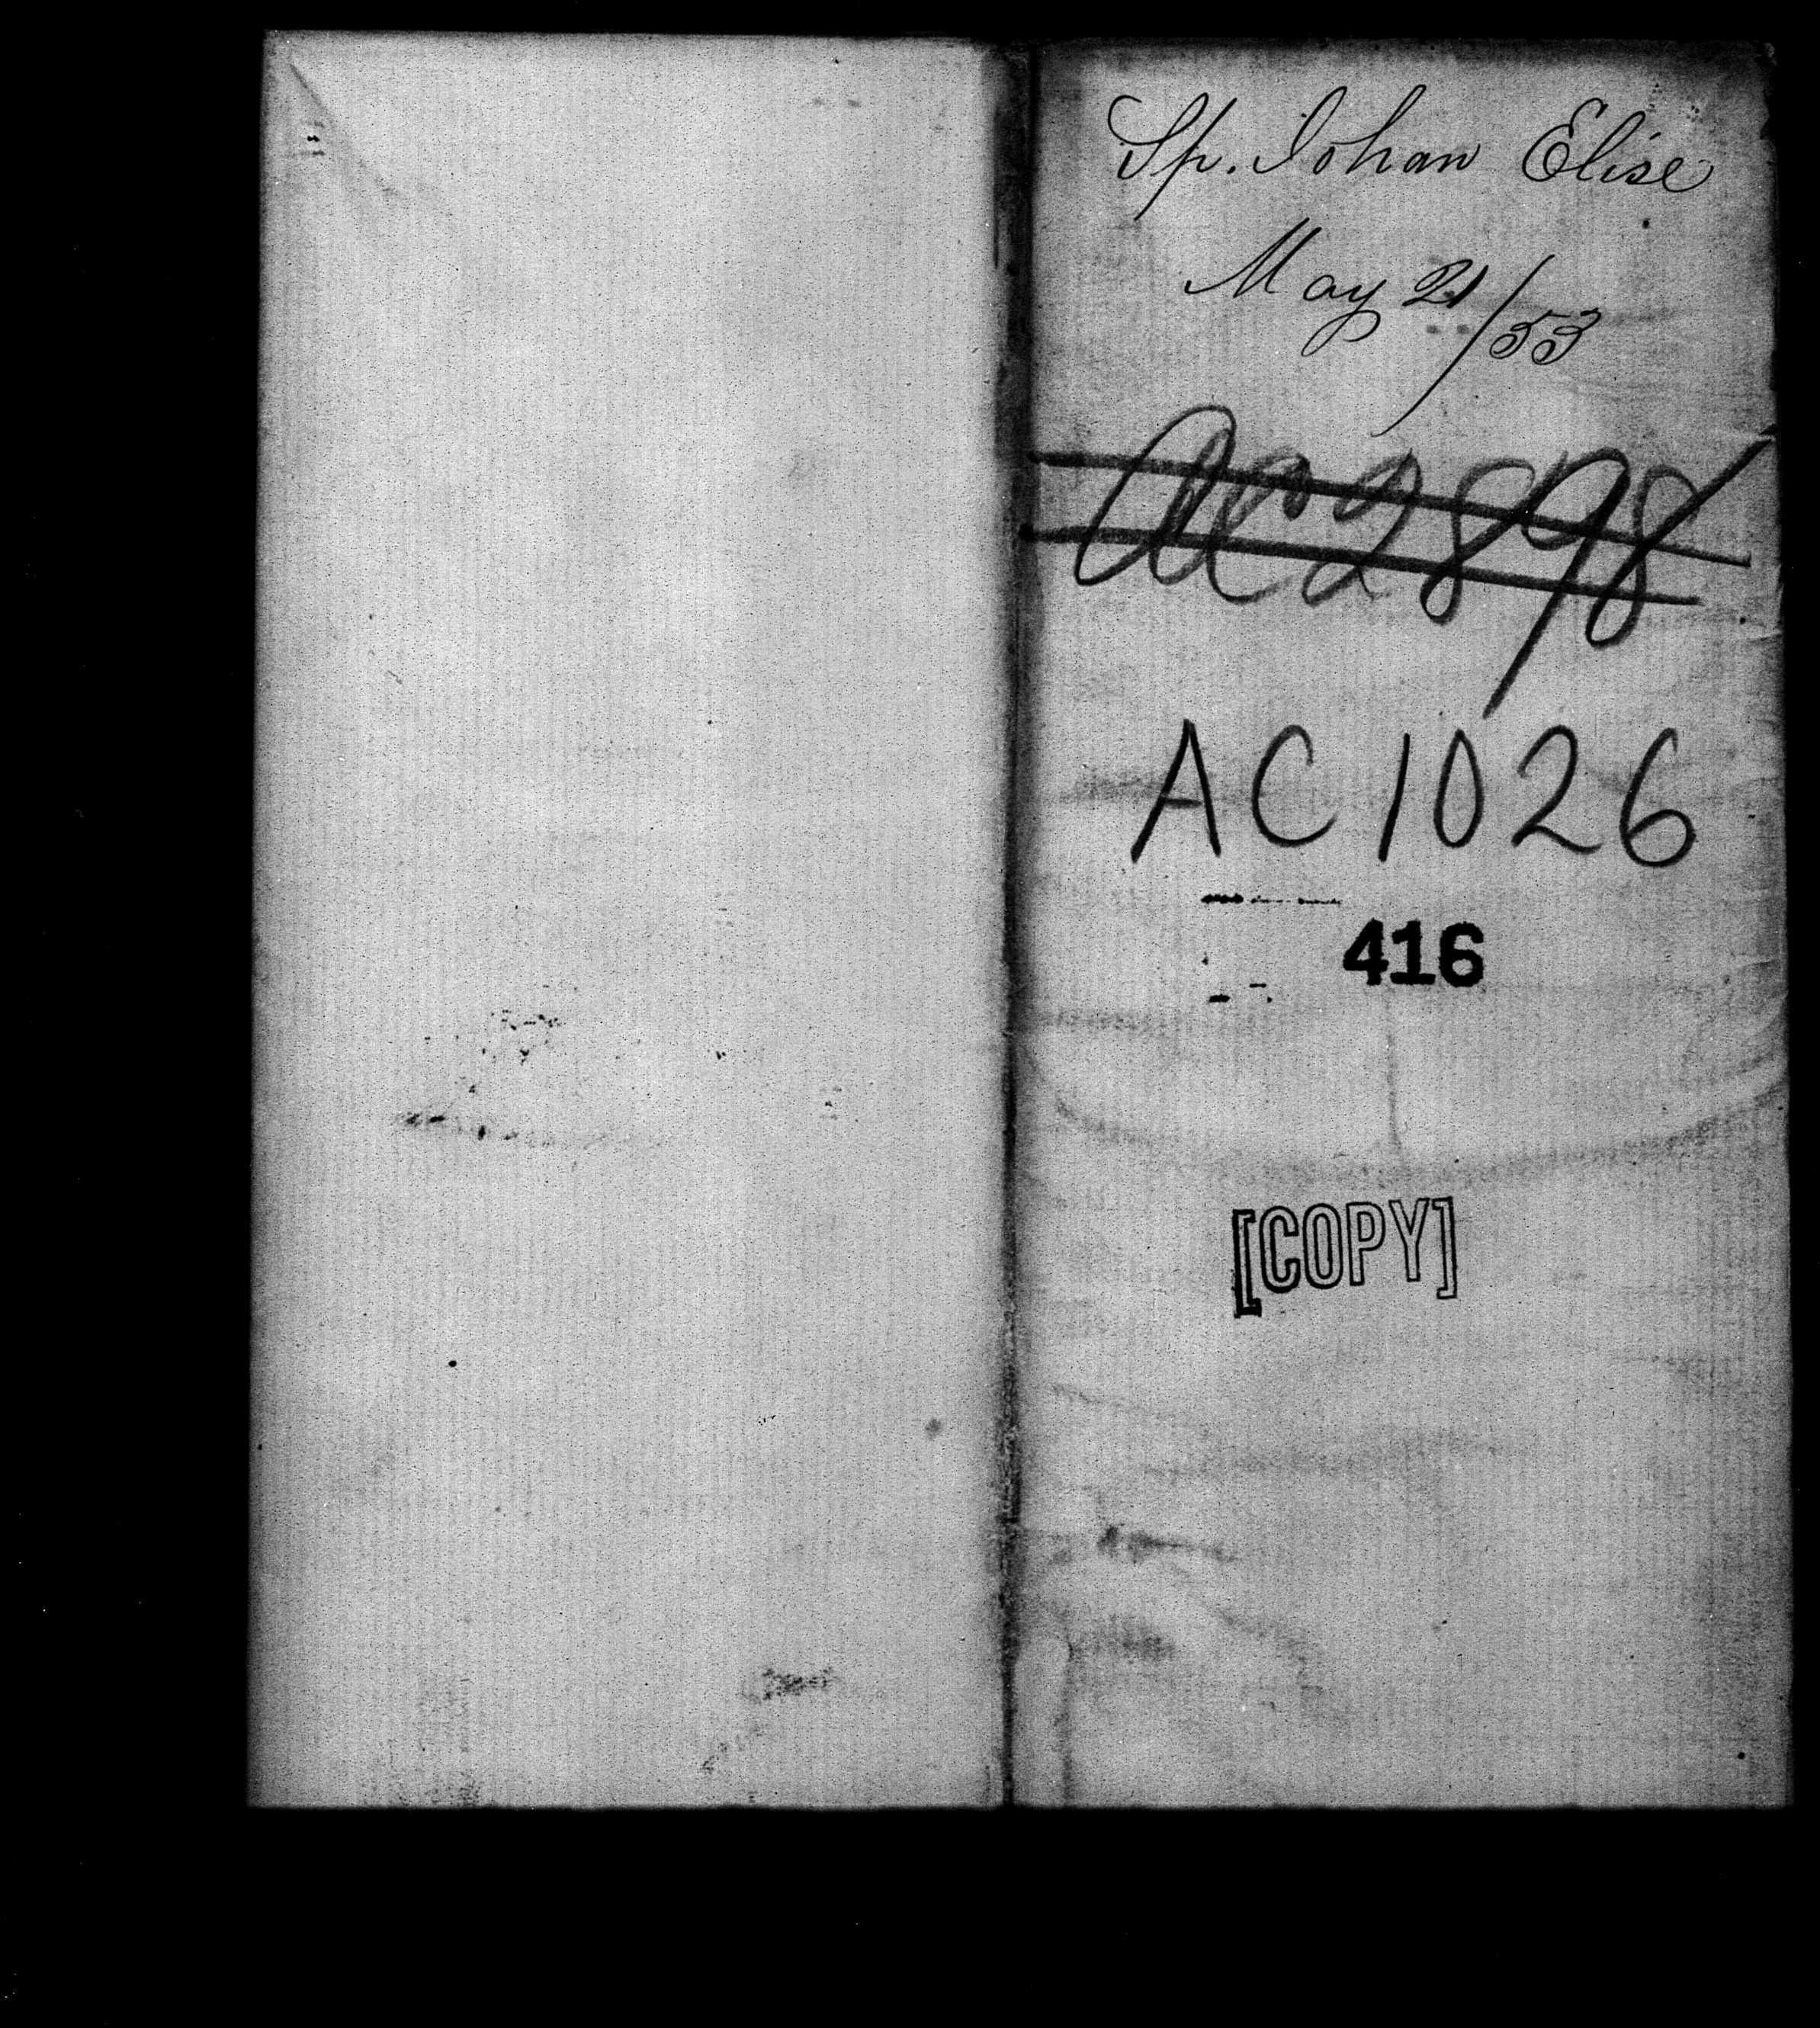 Sp. Johan Elise
May 21/53
AC 2898
AC 1026
416
[COPY]